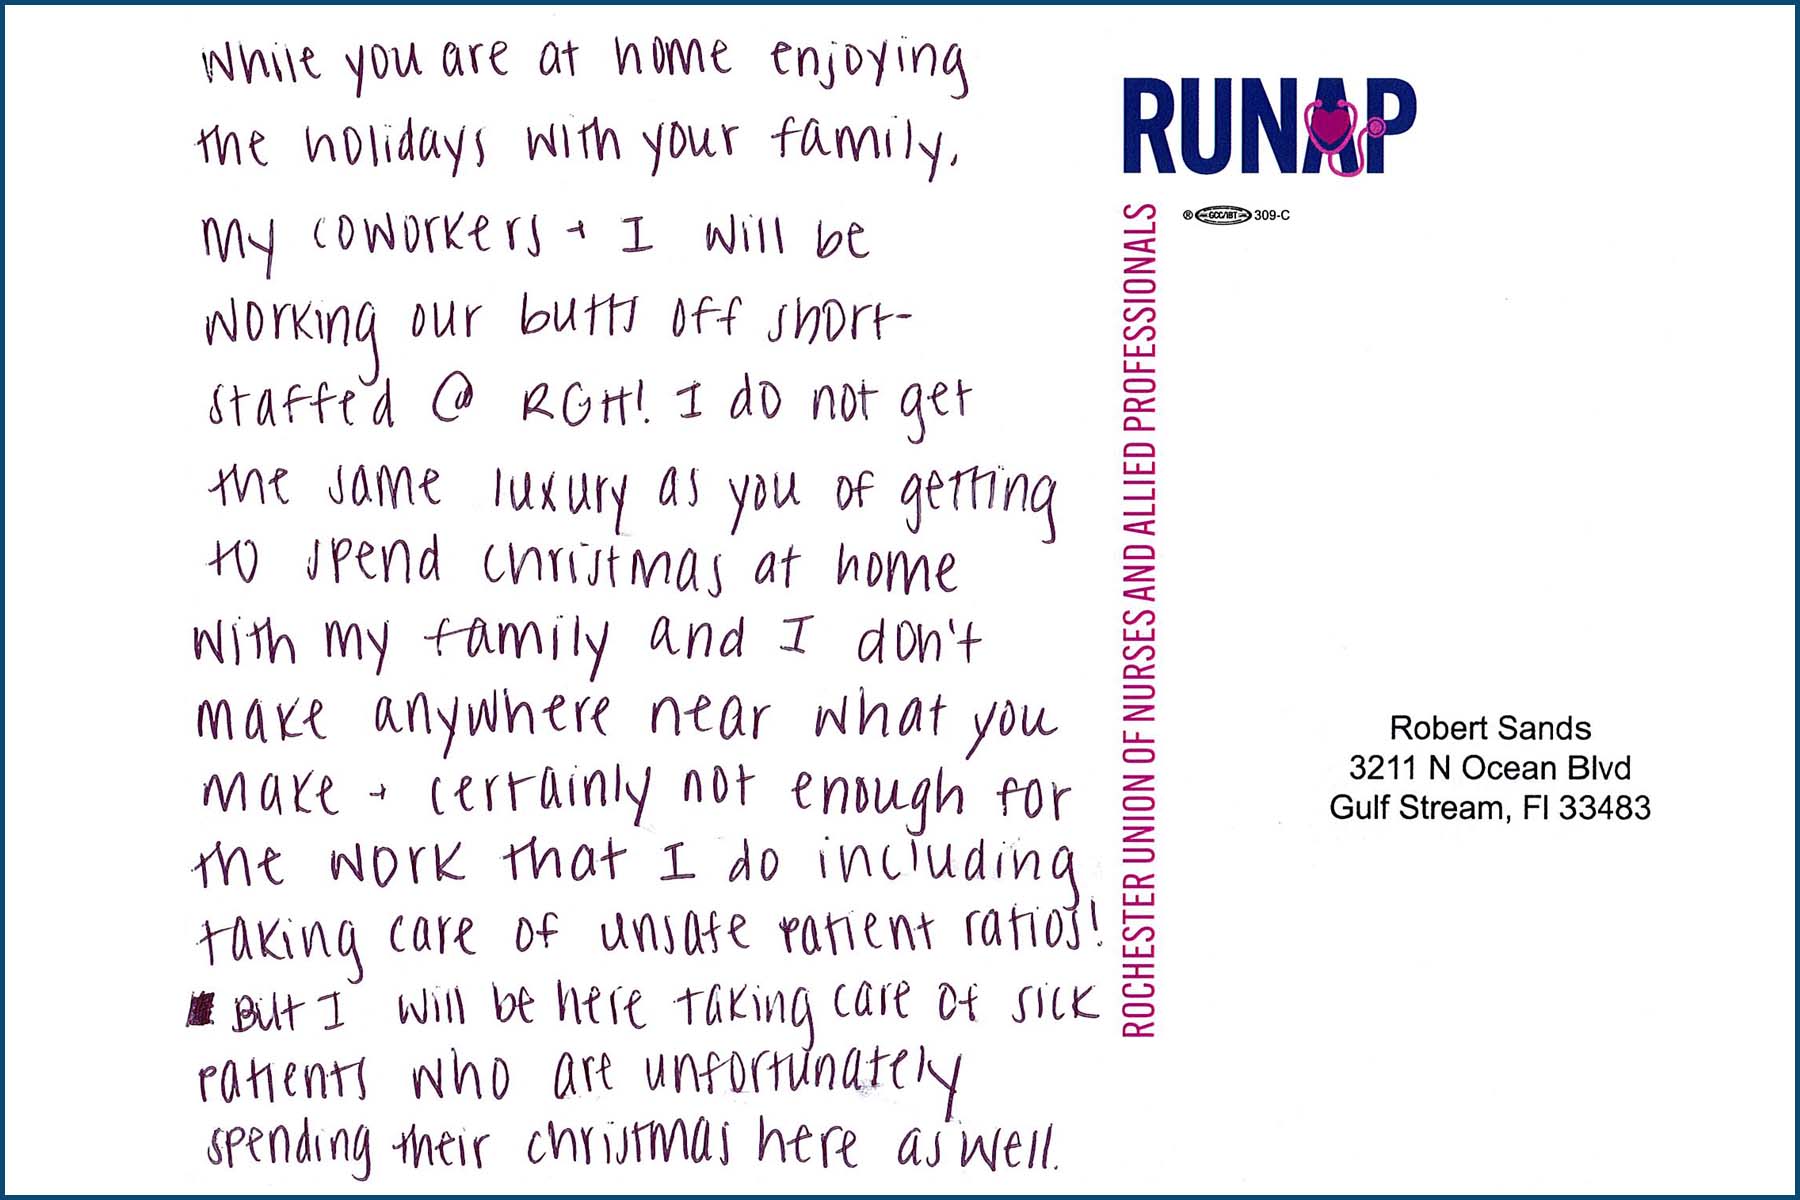 While you are at home enjoying
the holidays with your family,
my coworkers + I will be
working our butts off short-
staffed @ RGH! I do not get
the same luxury as you of getting
to spend christmas at home
with my family and I don't
make anywhere near what you
make + certainly not enough for
the work that I do including
taking care of unsafe patient ratios!
But I will be here taking care of sick
patients who are unfortunately
spending their christmas here as well.
RUNAP
® GCC/IBT 309-C
ROCHESTER UNION OF NURSES AND ALLIED PROFESSIONALS
Robert Sands
3211 N Ocean Blvd
Gulf Stream, Fl 33483